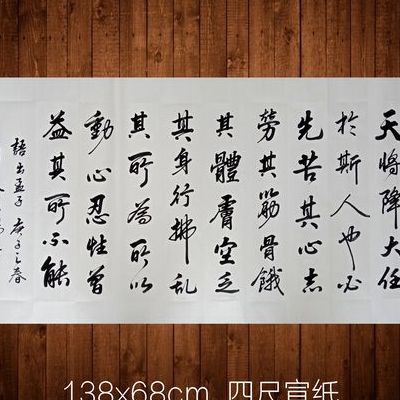 天將降大任
於斯人也必
先苦其心志
勞其筋骨餓
其體膚空乏
其身行拂乱
其所為所以
動心忍性曾
益其所不能
語出孟子 庚子之春
138x68cm 四尺宣纸